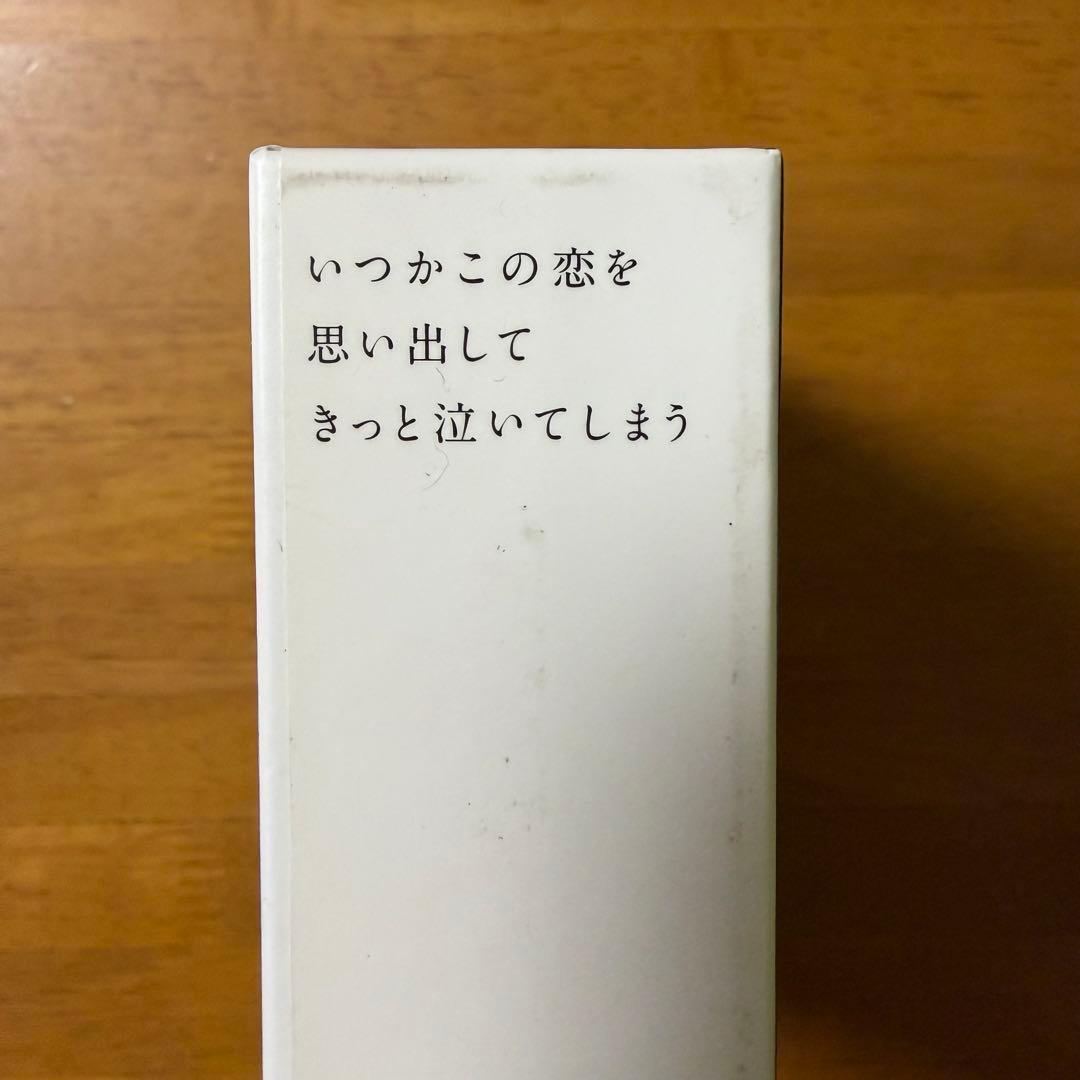 いつかこの恋を
思い出して
きっと泣いてしまう